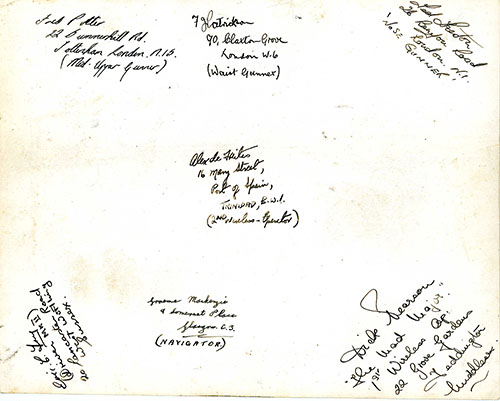 Fred Potter
22 Summerhill Rd.
Tottenham London. N.15
(Mid. Upper Gunner)
F J Patrickson
90, Claxton Grove
London W.6
(Waist Gunner)
Road
London N.1.
"Nose
Gunner"
Alex de
16 Mary Street,
Port of Spain,
TRINIDAD, B.W.I.
(2ND Wireless-Operator)
Graeme Mackenzie
4 Somerset Place
Glasgow. C.3.
(NAVIGATOR)
(Driver MK II)
20 Road
WEST WORTHING
SUSSEX.
Dick Pearson
"The Mad Major"
1st Wireless Op
22 Grove Gardens
Teddington
Middlesex